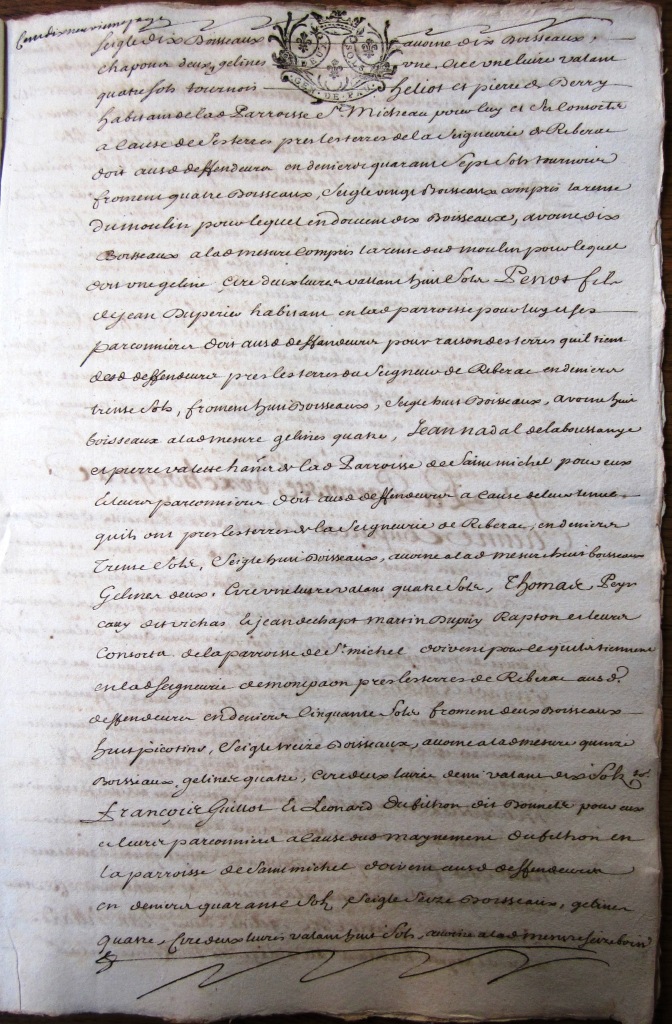 Centdixneuviemepage
seigle dix Boisseaux avoine dix Boisseaux,
chapons deux, gelines une, cire une livre valant
quatre sols tournois heliot et pierre de Berry
habitans de lad Parroisse St Micheau pour luy et ses consorts
a cause de ses terres pres les terres de la Seigneurie de Riberac
doit aud deffendeur en deniers quarante sept sols tournois
froment quatre Boisseaux, Seigle vingt Boisseaux compris la rente
du moulin pour lequel en doivent dix Boisseaux, avoine dix
Boisseaux a lad mesure compris la rente dud moulin pour lequel
doit une geline, Cire deux livres valant huit Sols Perrot fils
de jean Duperier habitant en lad parroisse pour luy et ses
parconniers doit aud deffendeur pour raison des terres quil tient
dud deffendeur pres les terres du Seigneur de Riberac en deniers
trente Sols, froment huit Boisseaux, Seigle huit Boisseaux, avoine huit
boisseaux a lad mesure gelines quatre, Jean nadal de laboussange
et pierre valette hans de lad Parroisse de Saint michel pour eux
et leurs parconniers doit aud deffendeur a cause de leur tenue
quils ont pres les terres de la Seigneurie de Riberac, en deniers
Trente Sols, Seigle huit Boisseaux, avoine a lad mesure huit boisseaux
Gelines deux, Cire une livre valant quatre Sols, Thomas Peyr
cauy dit vichas Et jean de chapt martin Dupuy Rapton et leurs
Consorts de la parroisse de St michel doivent pour ce quils tiennent
en lad Seigneurie de monpaon pres les terres de Riberac aud.
deffendeur en deniers Cinquante Sols froment deux Boisseaux
huit picotins, Seigle treize Boisseaux, avoine a lad mesure quinze
Boisseaux, gelines quatre, cire deux livres demi valant dix Sols
François Guillot Et Leonard Dubithon dit Bonnele pour eux
et leurs parconniers a Cause dud maynement Dubithon en
la parroisse de Saint michel doivent aud deffendeur
en deniers quarante Sols Seigle Seize Boisseaux, gelines
quatre, Cire deux livres valant huit Sols, avoine a lad mesure seize boiss